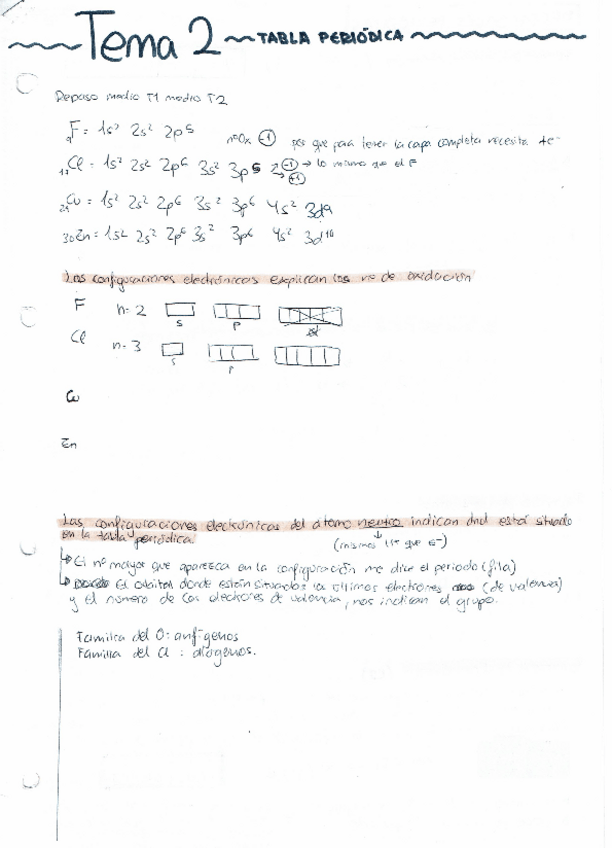 Tema 2 TABLA PERIÓDICA
Repaso medio T1 medio T2
₉F = 1s² 2s² 2p⁵ nºox -1 por que para tener la capa completa necesita 1e⁻
₁₇Cl = 1s² 2s² 2p⁶ 3s² 3p⁵ -1 → lo mismo que el F
+1
Cu = 1s² 2s² 2p⁶ 3s² 3p⁶ 4s² 3d9
30Zn = 1s² 2s² 2p⁶ 3s² 3p⁶ 4s² 3d¹⁰
Las configuraciones electrónicas explican los nº de oxidación
F n=2
s p
Cl n=3
s p
Cu
Zn
Las configuraciones electrónicas del átomo neutro indican dnd está situado
en la tabla periódica.
(mismos que e⁻)
↳ El nº mayor que aparezca en la configuración me dice el periodo (fila)
↳ El orbital donde están situados los últimos electrones (de valencia)
y el número de electrones de valencia, nos indican el grupo.
Familia del O: anfígenos
Familia del Cl : alógenos.